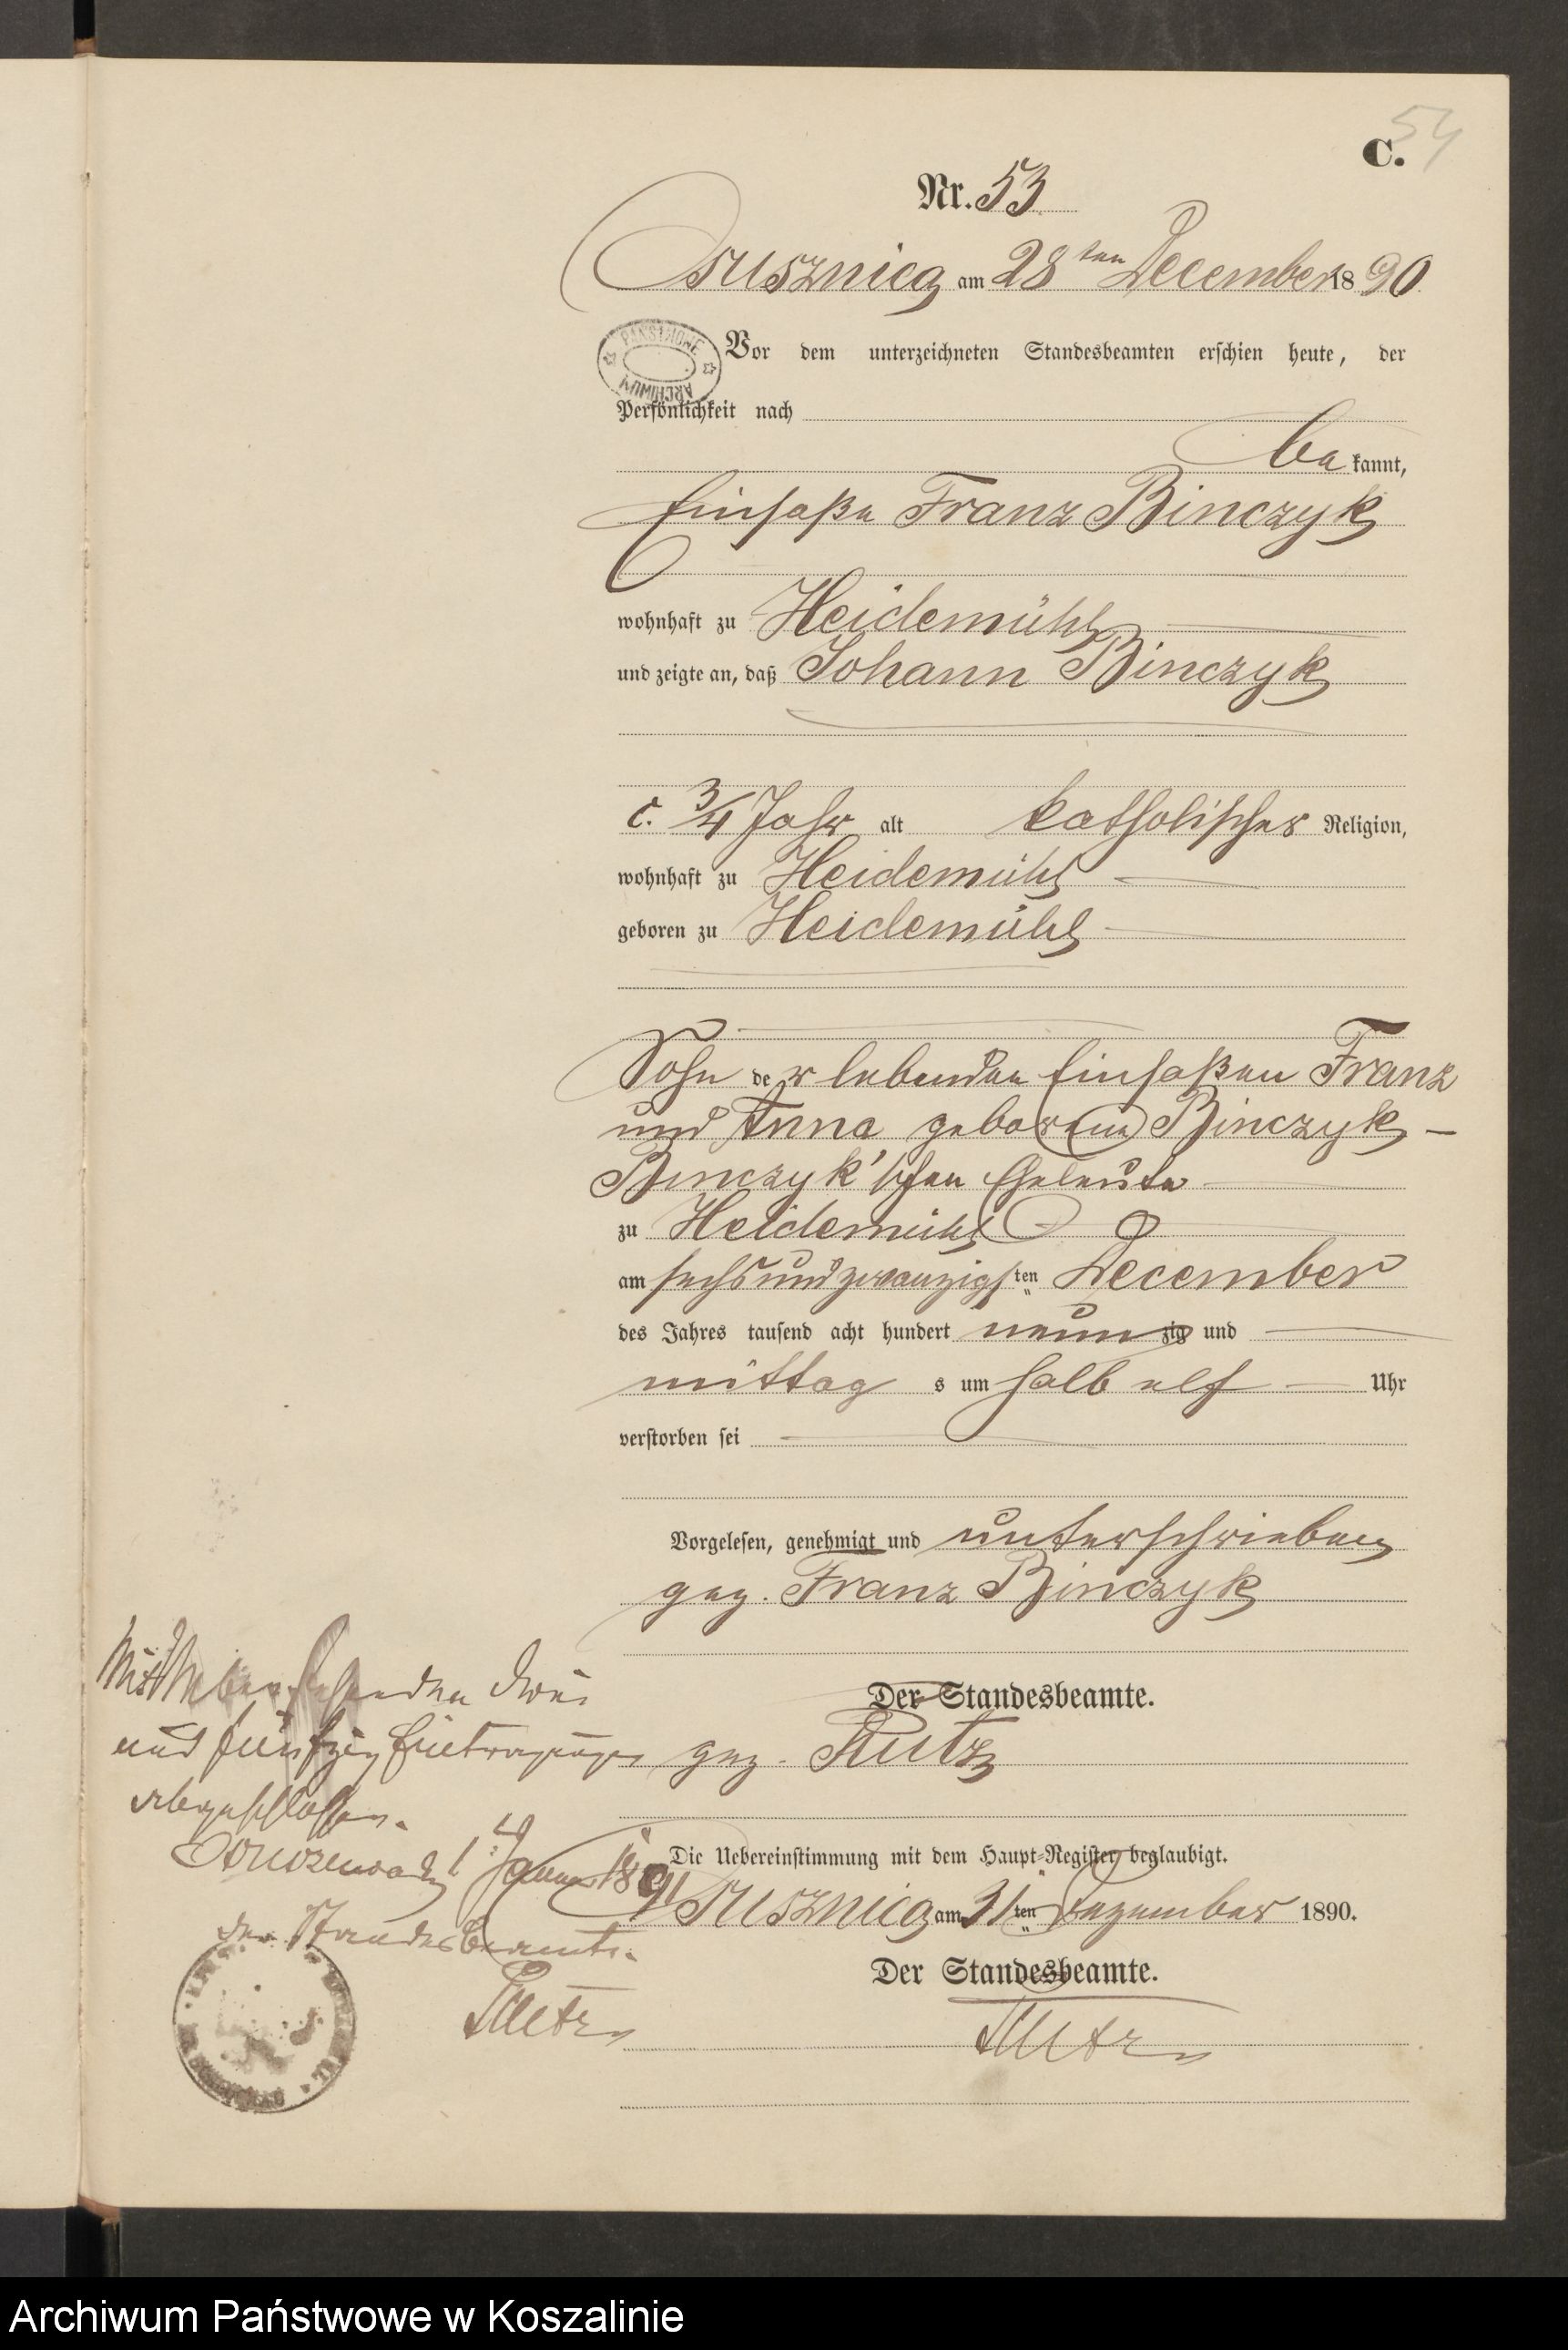 C.
54
Nr. 53
Osusznica am 28ten December 1890
PAŃSTWOWE
ARCHIWUM
Vor dem unterzeichneten Standesbeamten erschien heute, der
Persönlichkeit nach
bekannt,
Einsaße Franz Binczyk
wohnhaft zu Heidemühl
und zeigte an, daß Johann Binczyk
c. 3/4 Jahr alt katholischer Religion,
wohnhaft zu Heidemühl
geboren zu Heidemühl
Sohn der lebenden Einsaßen Franz
und Anna geborene Binczyk –
Binczyk'schen Eheleute
zu Heidemühl
am sechsundzwanzigsten December
des Jahres tausend acht hundert neunzig und
mittags um halb elf Uhr
verstorben sei
Vorgelesen, genehmigt und unterschrieben
gez. Franz Binczyk
Der Standesbeamte.
gez. Rutz
Die Uebereinstimmung mit dem Haupt-Register beglaubigt.
Osusznica am 31ten Dezember 1890.
Der Standesbeamte.
Rutz
Mit drei
und fünfzig Eintragungen
abgeschlossen.
1 Januar 1891
Der Standesbeamte.
Rutz
Archiwum Państwowe w Koszalinie